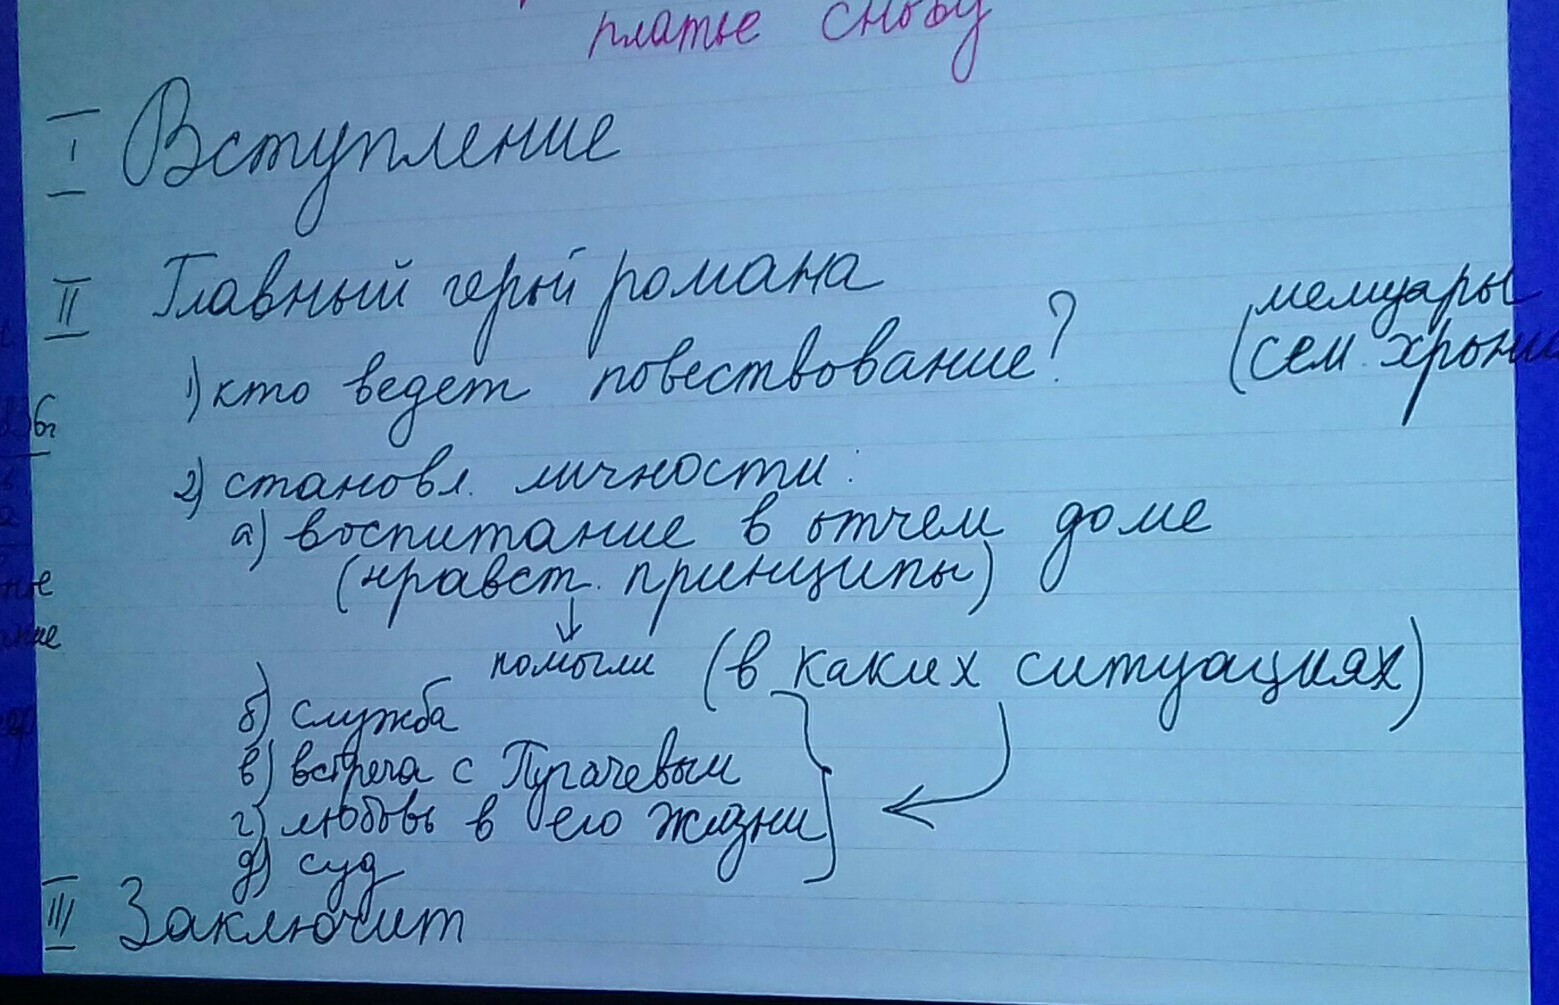 платье снову
I Вступление
II Главный герой романа
1) кто ведет повествование? (мемуары
(сем. хрони
2) становл. личности:
а) воспитание в отчем доме
(нравст. принципы)
↓
помогли (в каких ситуациях)
б) служба
в) встреча с Пугачевым
г) любовь в его жизни
д) суд
III Заключит